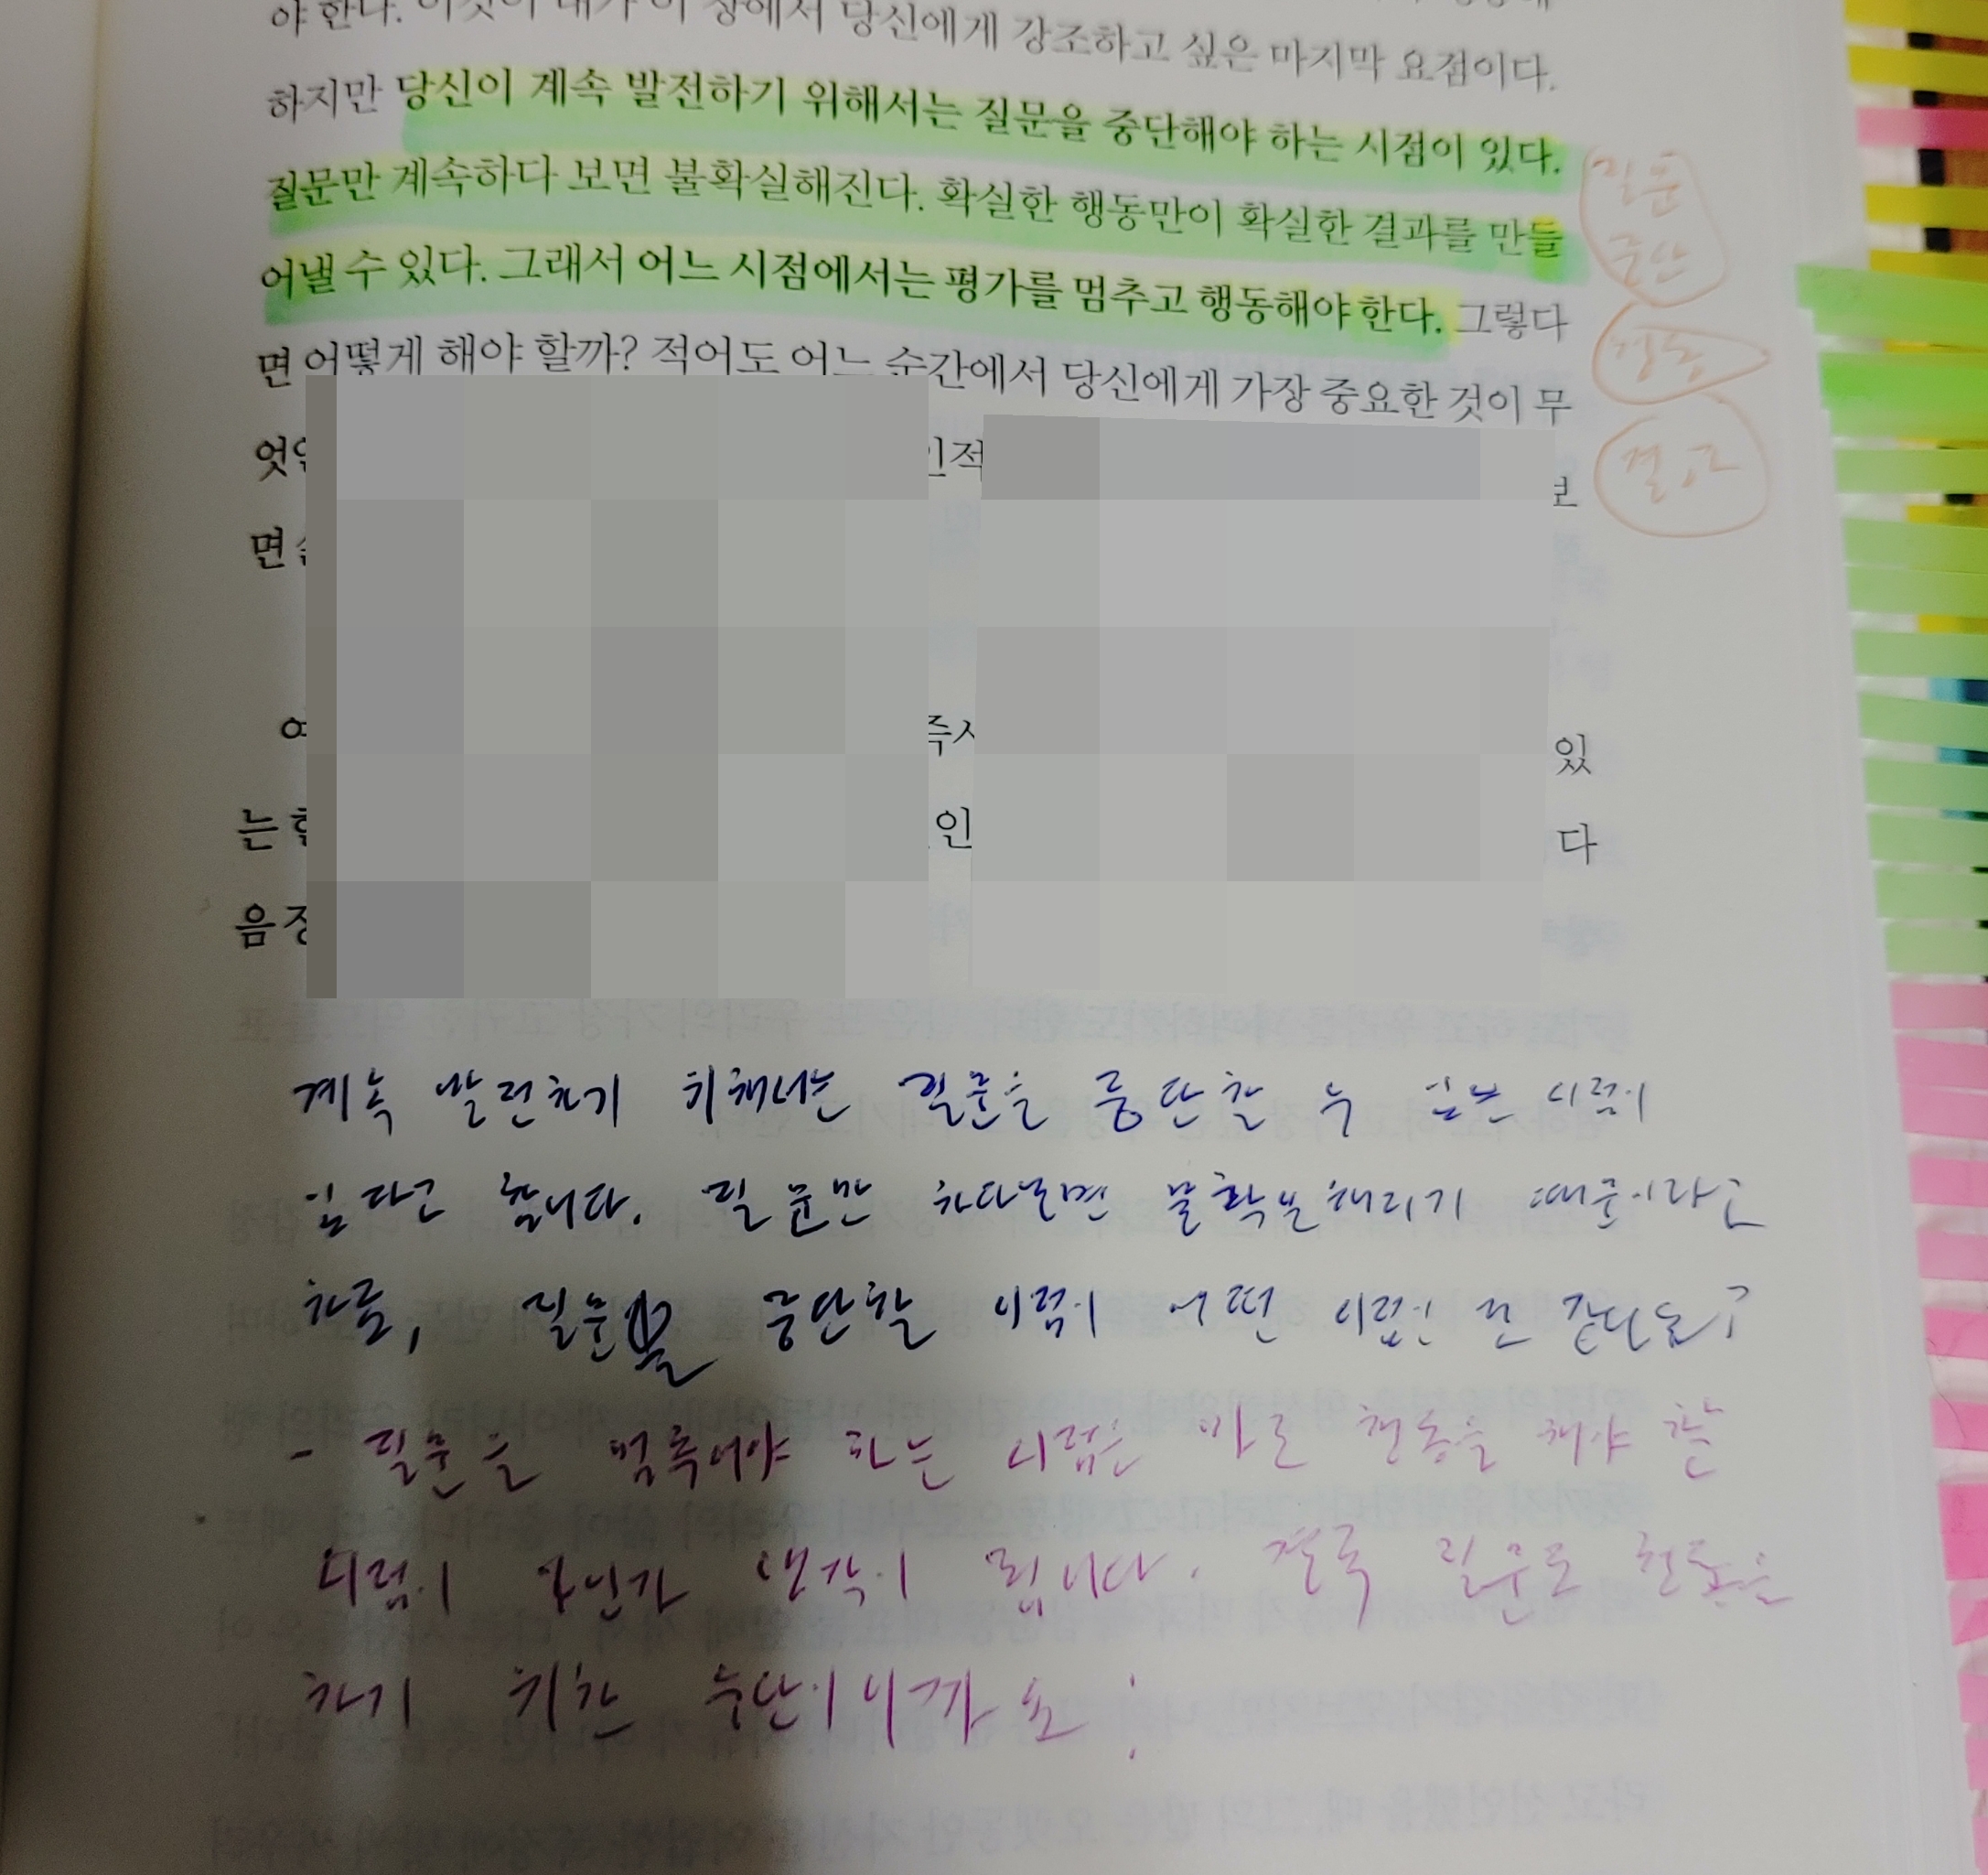 당신에게 강조하고 싶은 마지막 요점이다.
하지만 당신이 계속 발전하기 위해서는 질문을 중단해야 하는 시점이 있다.
질문만 계속하다 보면 불확실해진다. 확실한 행동만이 확실한 결과를 만들
어낼 수 있다. 그래서 어느 시점에서는 평가를 멈추고 행동해야 한다. 그렇다
면 어떻게 해야 할까? 적어도 어느 순간에서 당신에게 가장 중요한 것이 무
엇
면
있
는 인 다
음
질문
중단
행동
결과
계속 발전하기 위해서는 질문을 중단할 수 있는 시점이
있다고 합니다. 질문만 하다보면 불확실해지기 때문이라고
하죠, 질문을 중단할 시점이 어떤 시점인 것 같나요?
- 질문을 멈추어야 하는 시점은 바로 행동을 해야 할
시점이 아닌가 생각이 됩니다. 결국 질문도 행동을
하기 위한 수단이니까요!